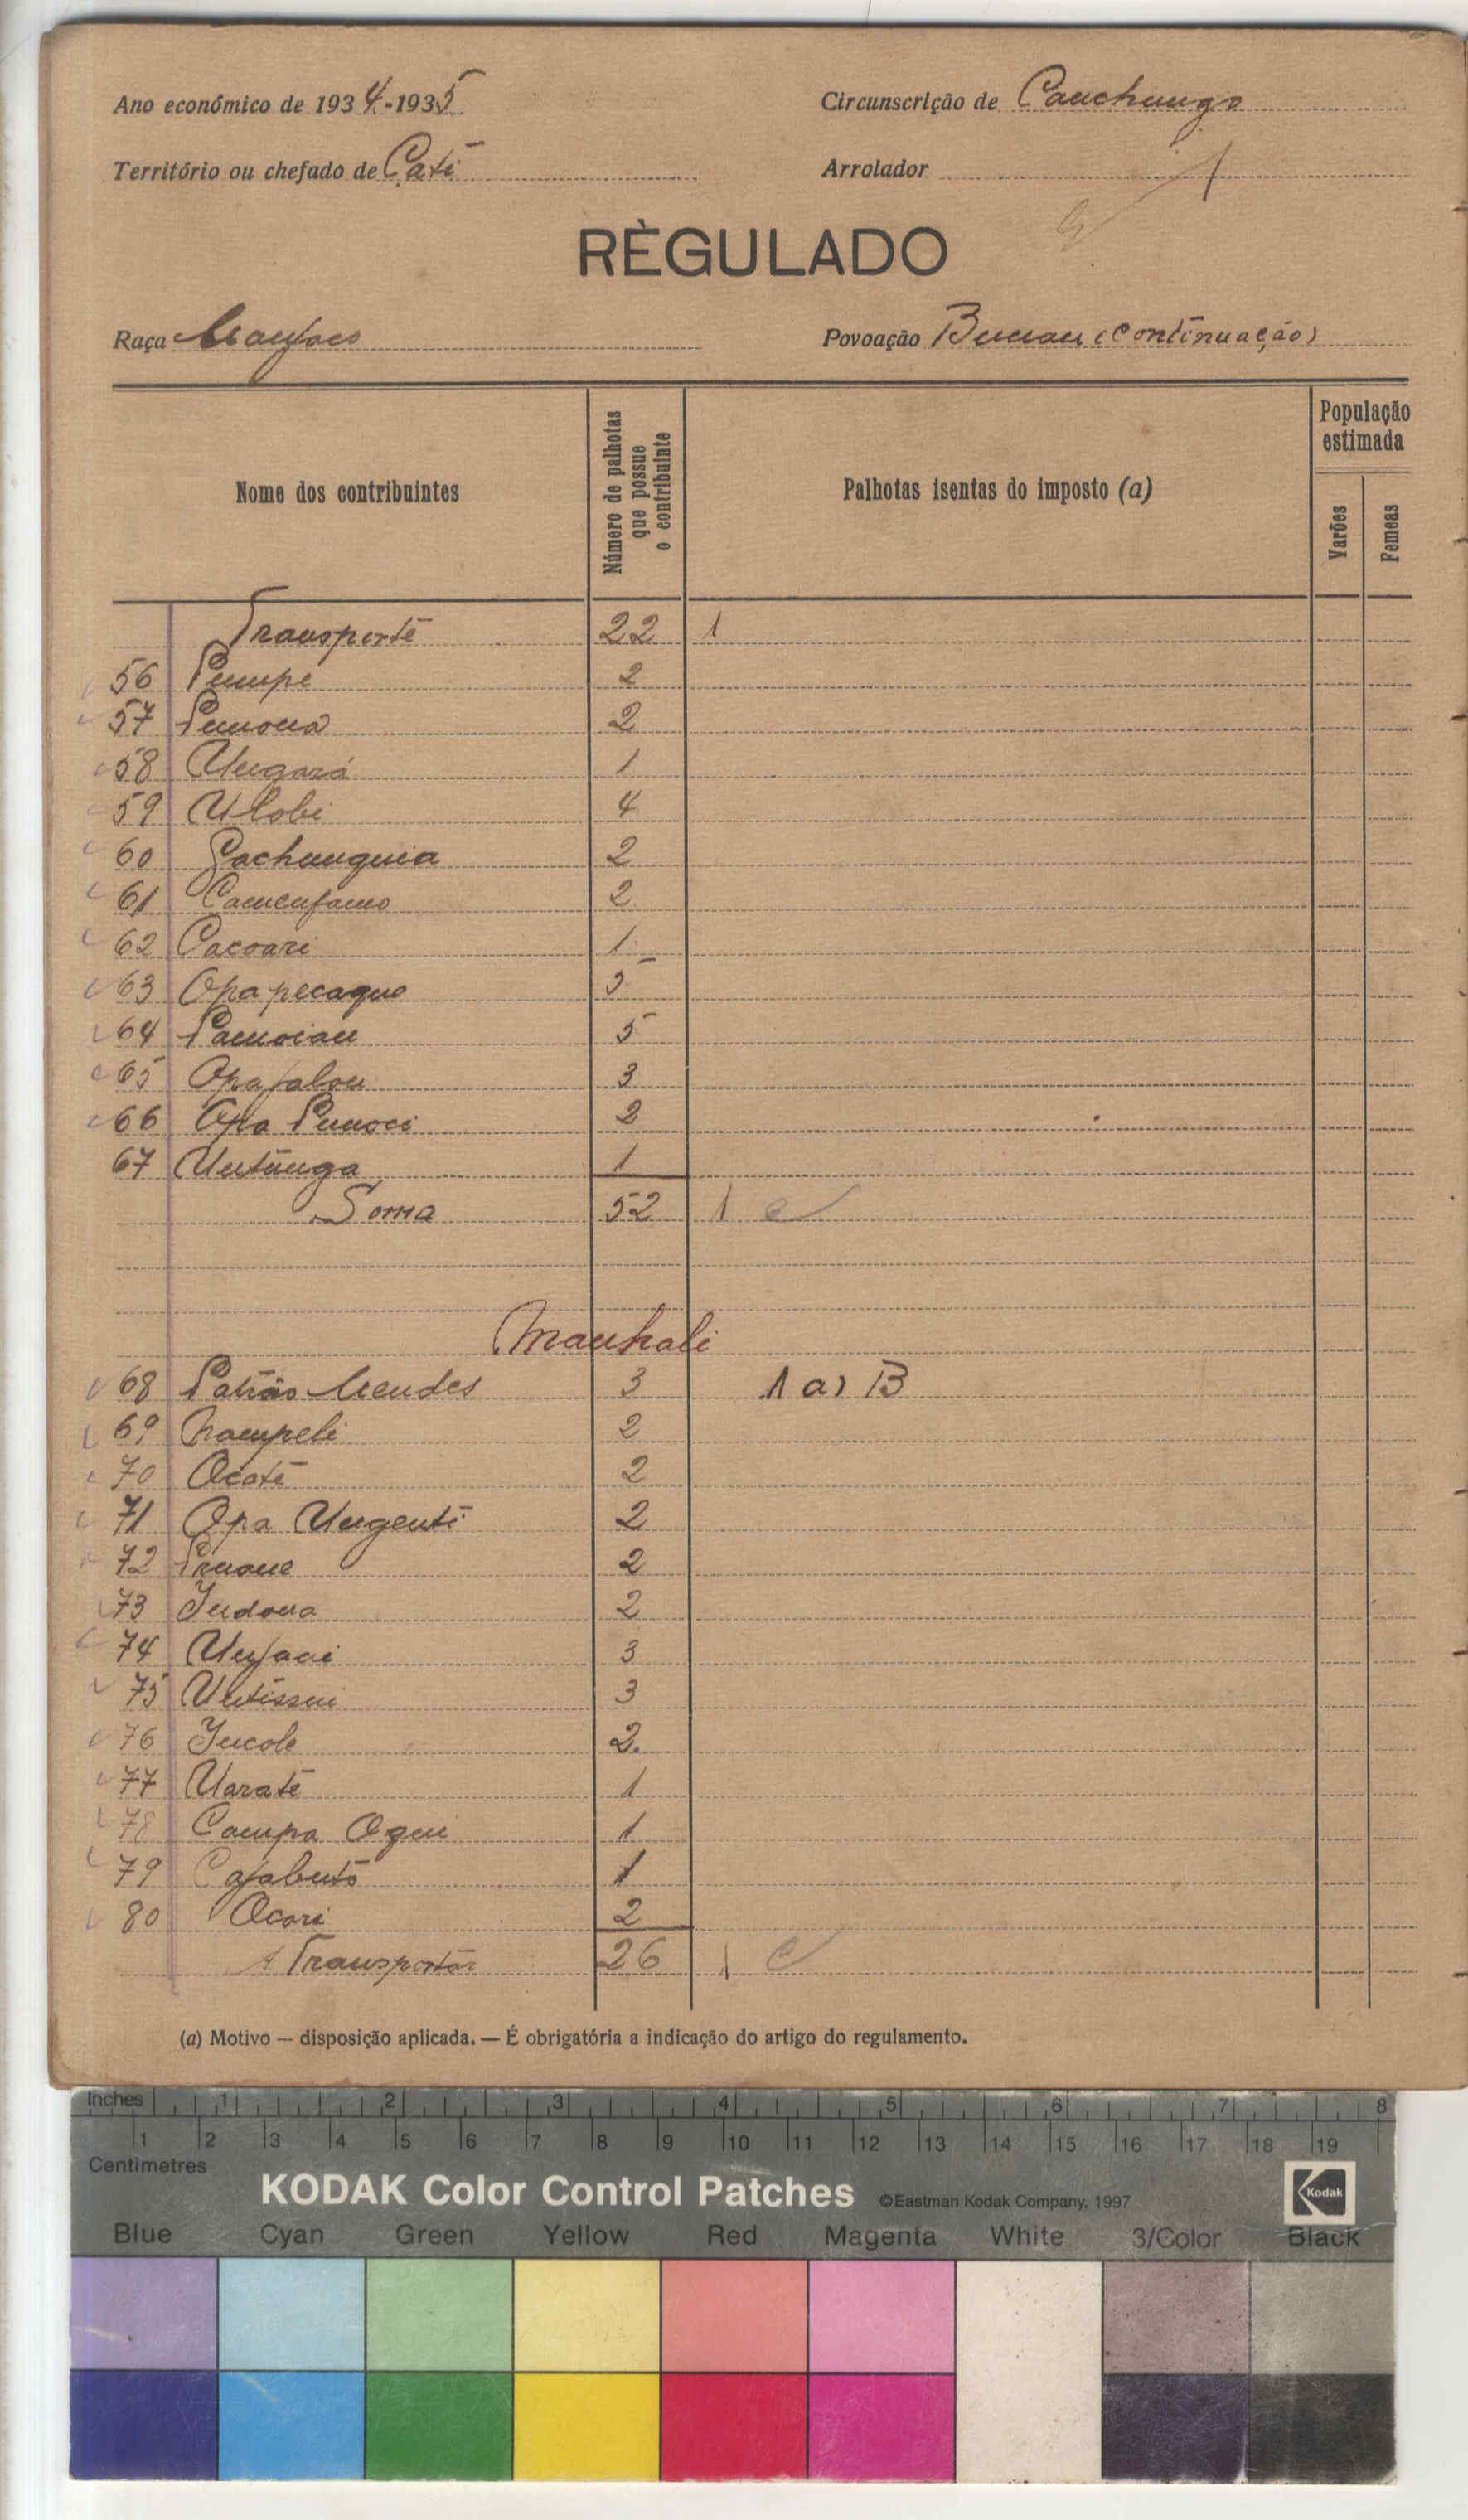 Ano económico de 1934-1935
Circunscrição de Canchungo
Território ou chefado de Cati
Arrolador
RÈGULADO
Raça Manjaco
Povoação (continuação)
Nome dos contribuintes
Número de palhotas que possue o contribuinte
Palhotas isentas do imposto (a)
População estimada
Varões
Femeas
Transporte 22 1
56 Pumpe 2
57 2
58 Ungará 1
59 Ulobi 4
60 2
61 2
62 Cacoari 1
63 Opa pecaque 5
64 5
65 3
66 Opa 2
67 Untunga 1
Soma 52 1
Manhali
68 Patrão Mendes 3 1 a) B
69 Nampeli 2
70 Ocate 2
71 Opa Ungenti 2
72 2
73 Indona 2
74 3
75 3
76 2.
77 Uarate 1
78 Campa 1
79 1
80 Ocari 2
A Transportar 26 1
(a) Motivo — disposição aplicada. — É obrigatória a indicação do artigo do regulamento.
Inches 1 2 3 4 5 6 7 8
1 2 3 4 5 6 7 8 9 10 11 12 13 14 15 16 17 18 19
Centimetres
KODAK Color Control Patches ©Eastman Kodak Company, 1997 Kodak
Blue Cyan Green Yellow Red Magenta White 3/Color Black